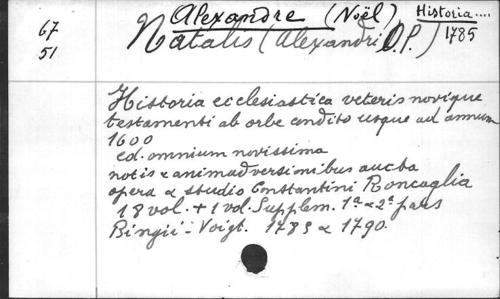 67
51
Alexandre (Noël)
Historia....
1785
Natalis (Alexandri O.P.)
Historia ecclesiastica veteris novique
testamenti ab orbe condito usque ad annum
1600
ed. omnium novissima
notis & animadversionibus aucta
opera & studio Constantini Roncaglia
18 vol. + 1 vol. Supplem. 1ª & 2ª pars
Bingii - Voigt. 1785 & 1790.